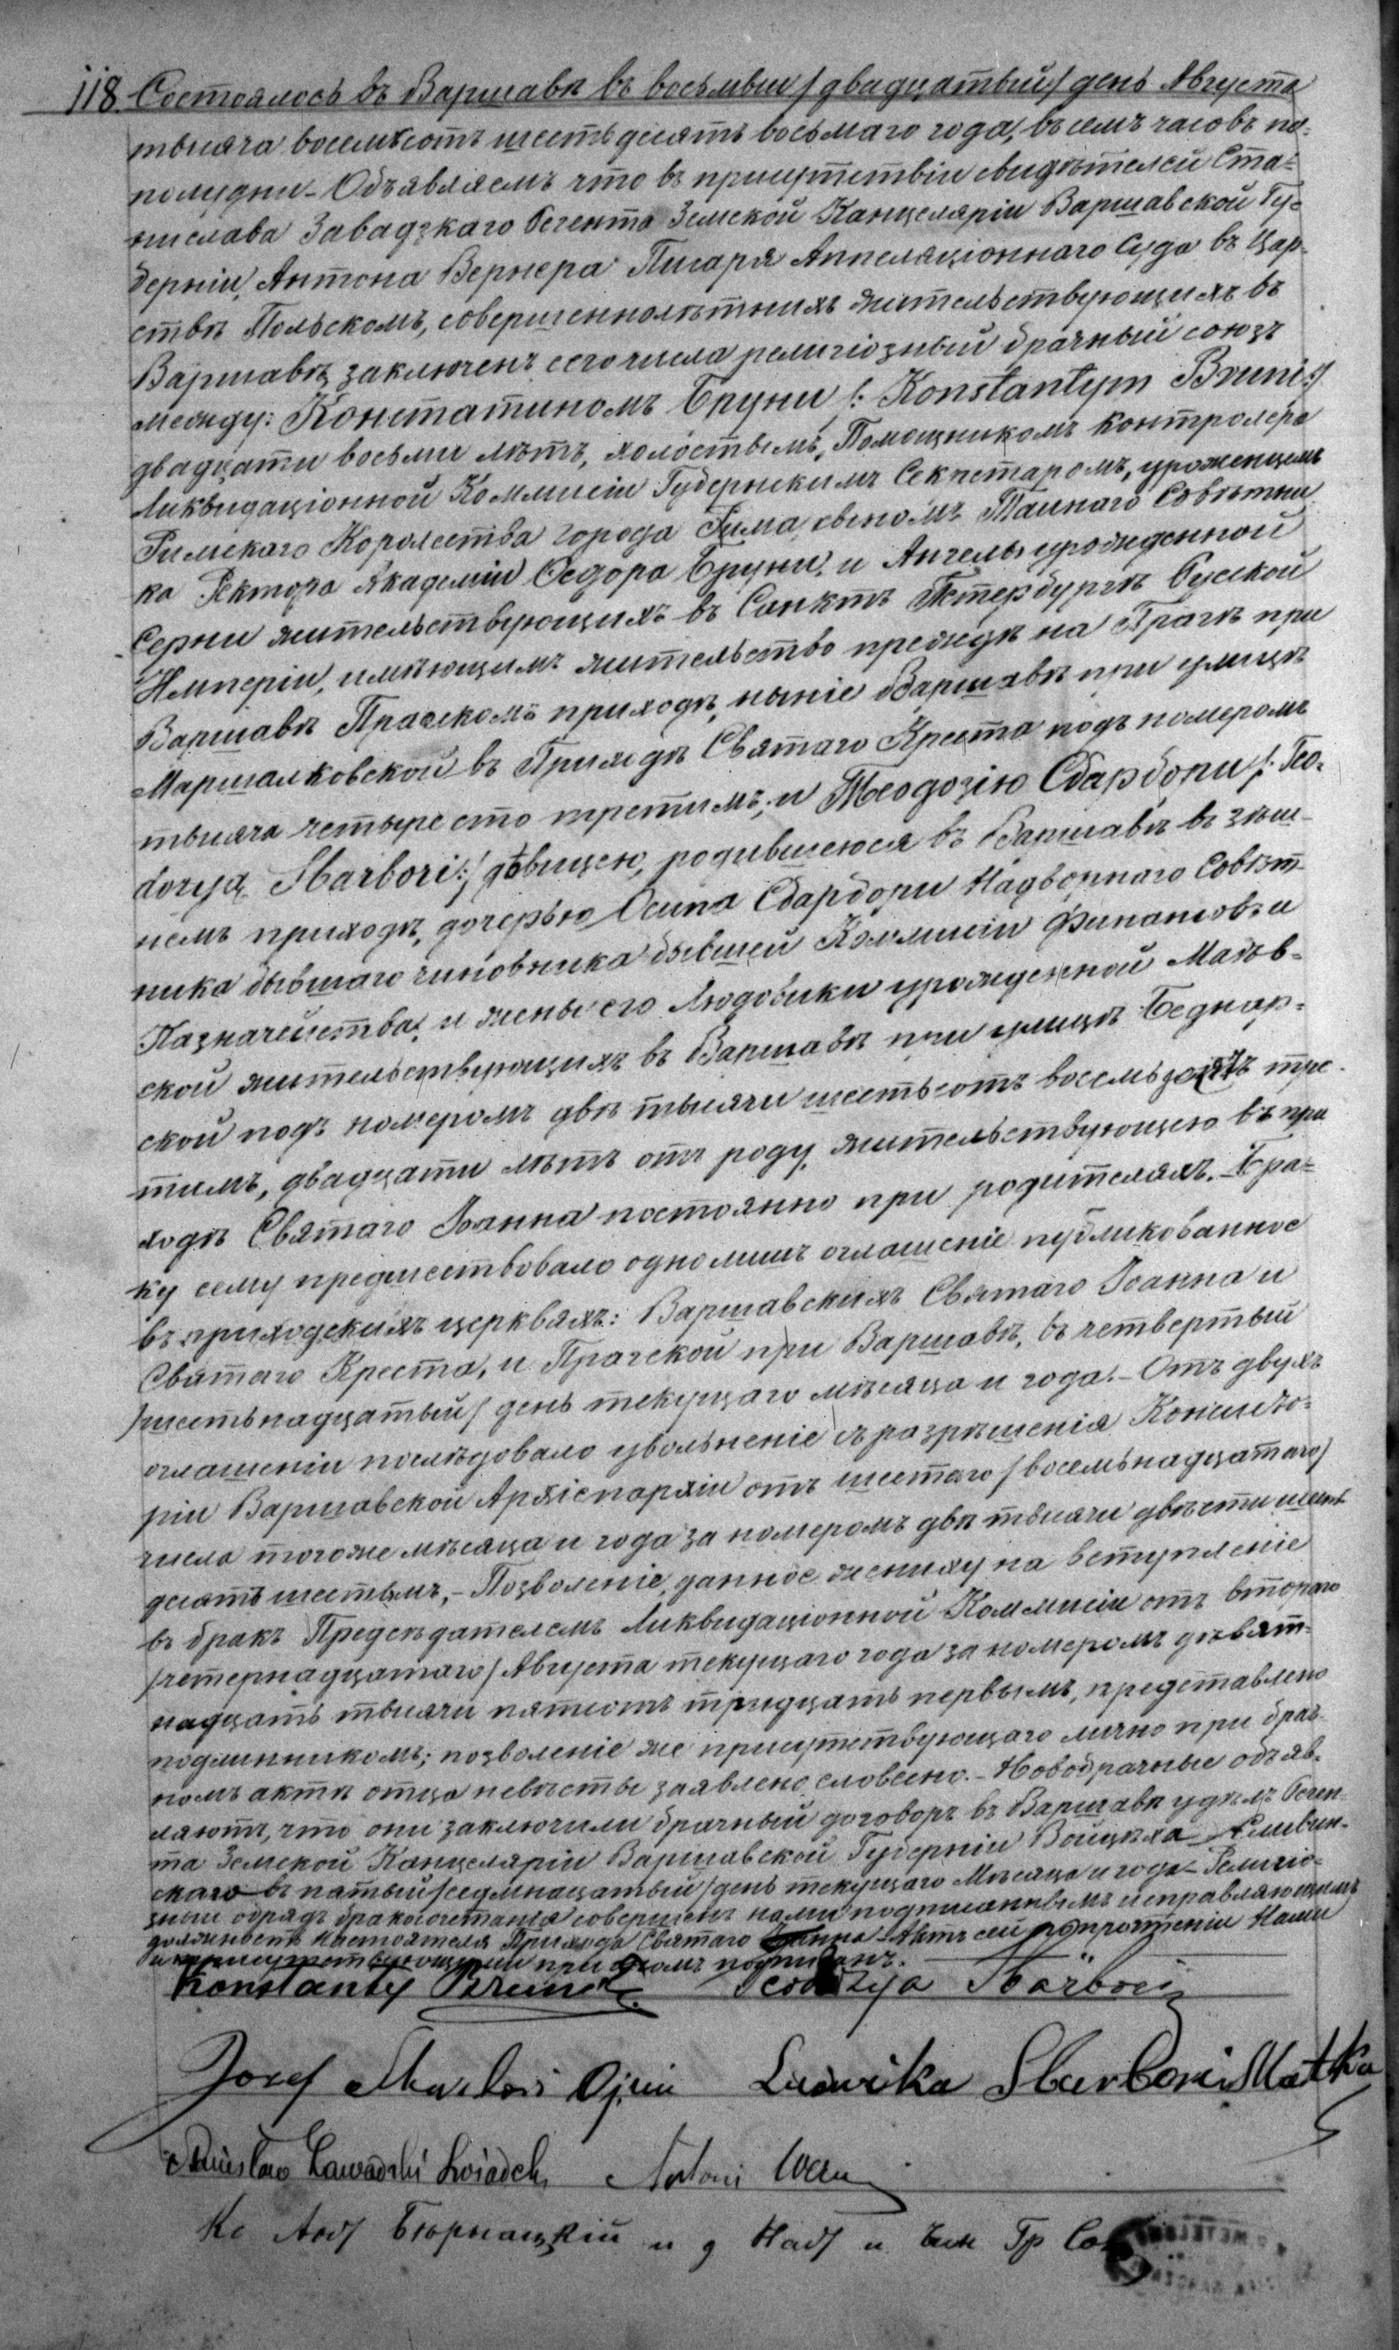 118. Состоялось въ Варшавѣ въ восьмый /двадцатый/ день Августа
тысяча восемьсотъ шестьдесятъ восьмаго года, въ семъ часовъ по-
полудни. Объявляемъ что въ присутствіи свидѣтелей Ста-
нислава Завадзкаго Регента Земской Канцеляріи Варшавской Гу-
берніи, Антона Вернера Писаря Аппеляціоннаго Суда въ Цар-
ствѣ Польскомъ, совершеннолѣтнихъ жительствующихъ въ
Варшавѣ, заключенъ сего числа религіозный брачный союзъ
между: Константиномъ Бруни /: Konstantym Bruni :/
двадцати восьми лѣтъ, холостымъ, Помощникомъ контролера
Ликвидаціонной Коммисіи Губернскимъ Секретаромъ, уроженцемъ
Римскаго Королества города Рима, сыномъ Тайнаго Совѣтни-
ка Ректора Академіи Ѳедора Бруни, и Ангелы урожденной
Серни жительствующихъ въ Санктъ Петербургѣ Русской
Имперіи, имѣющимъ жительство прежде на Прагѣ при
Варшавѣ Пражскомъ приходѣ, ныніе Варшавѣ при улицѣ
Маршалковской въ Приходѣ Святаго Креста подъ номеромъ
тысяча четыреста третимъ; и Теодозію Сбарбори /: Teo-
dozyą Sbarbori :/ дѣвицею, родившеюся въ Варшавѣ въ здѣш-
немъ приходѣ, дочерью Осипа Сбарбори Надворнаго Совѣт-
ника бывшаго чиновника бывшей Коммисіи Финансовъ и
Казначейства, и жены его Людовики урожденной Маев-
ской жительствующихъ въ Варшавѣ при улицѣ Беднар-
ской подъ номеромъ двѣ тысячи шестьсотъ восемьдесятъ тре-
тимъ, двадцати лѣтъ отъ роду, жительствующею въ при-
ходѣ Святаго Іоанна постоянно при родителяхъ. Бра-
ку сему предшествовало одно лишъ оглашеніе публикованное
въ приходскихъ церквяхъ: Варшавскихъ Святаго Іоанна и
Святаго Креста, и Пражской при Варшавѣ, въ четвертый
/шестьнадцатый/ день текущаго мѣсяца и года. Отъ двухъ
оглашеніи послѣдовало увольненіе съ разрѣшенія Консисто-
ріи Варшавской Архіепархіи отъ шестаго /восемьнадцатаго/
числа тогоже мѣсяца и года за номеромъ двѣ тысячи двѣсти шесть-
десятъ шестымъ. Позволеніе, данное жениху на вступленіе
въ бракъ Предсѣдателемъ Ликвидаціонной Коммисіи отъ втораго
/четернадцатаго/ Августа текущаго года за номеромъ девят-
надцать тысячи пятсотъ тридцать первымъ, представлено
подлинникомъ; позволеніе же присутствующаго лично при брач-
номъ актѣ отца невѣсты заявлено словесно. Новобрачные объяв-
ляютъ, что они заключили брачный договоръ въ Варшавѣ у дѣлъ Реген-
та Земской Канцеляріи Варшавской Губерніи Войцѣха Сливин-
скаго въ пятый /седмнацатый/ день текущаго Мѣсяца и года. Религіо-
зный обрядъ бракосочетанія совершенъ нами подписаннымъ исправляющимъ
должность Настоятеля Прихода Святаго Іоанна. Актъ сей по прочтеніи Нами
и присутствующими при ономъ подписанъ.
Konstanty Bruni Teodozya Sbarbori
Józef Sbarbori Ojciec Ludwika Sbarbori Matka
Stanisław Zawadzki świadek Antoni Wern
Кс Адоf и д Наbf и Гр Со